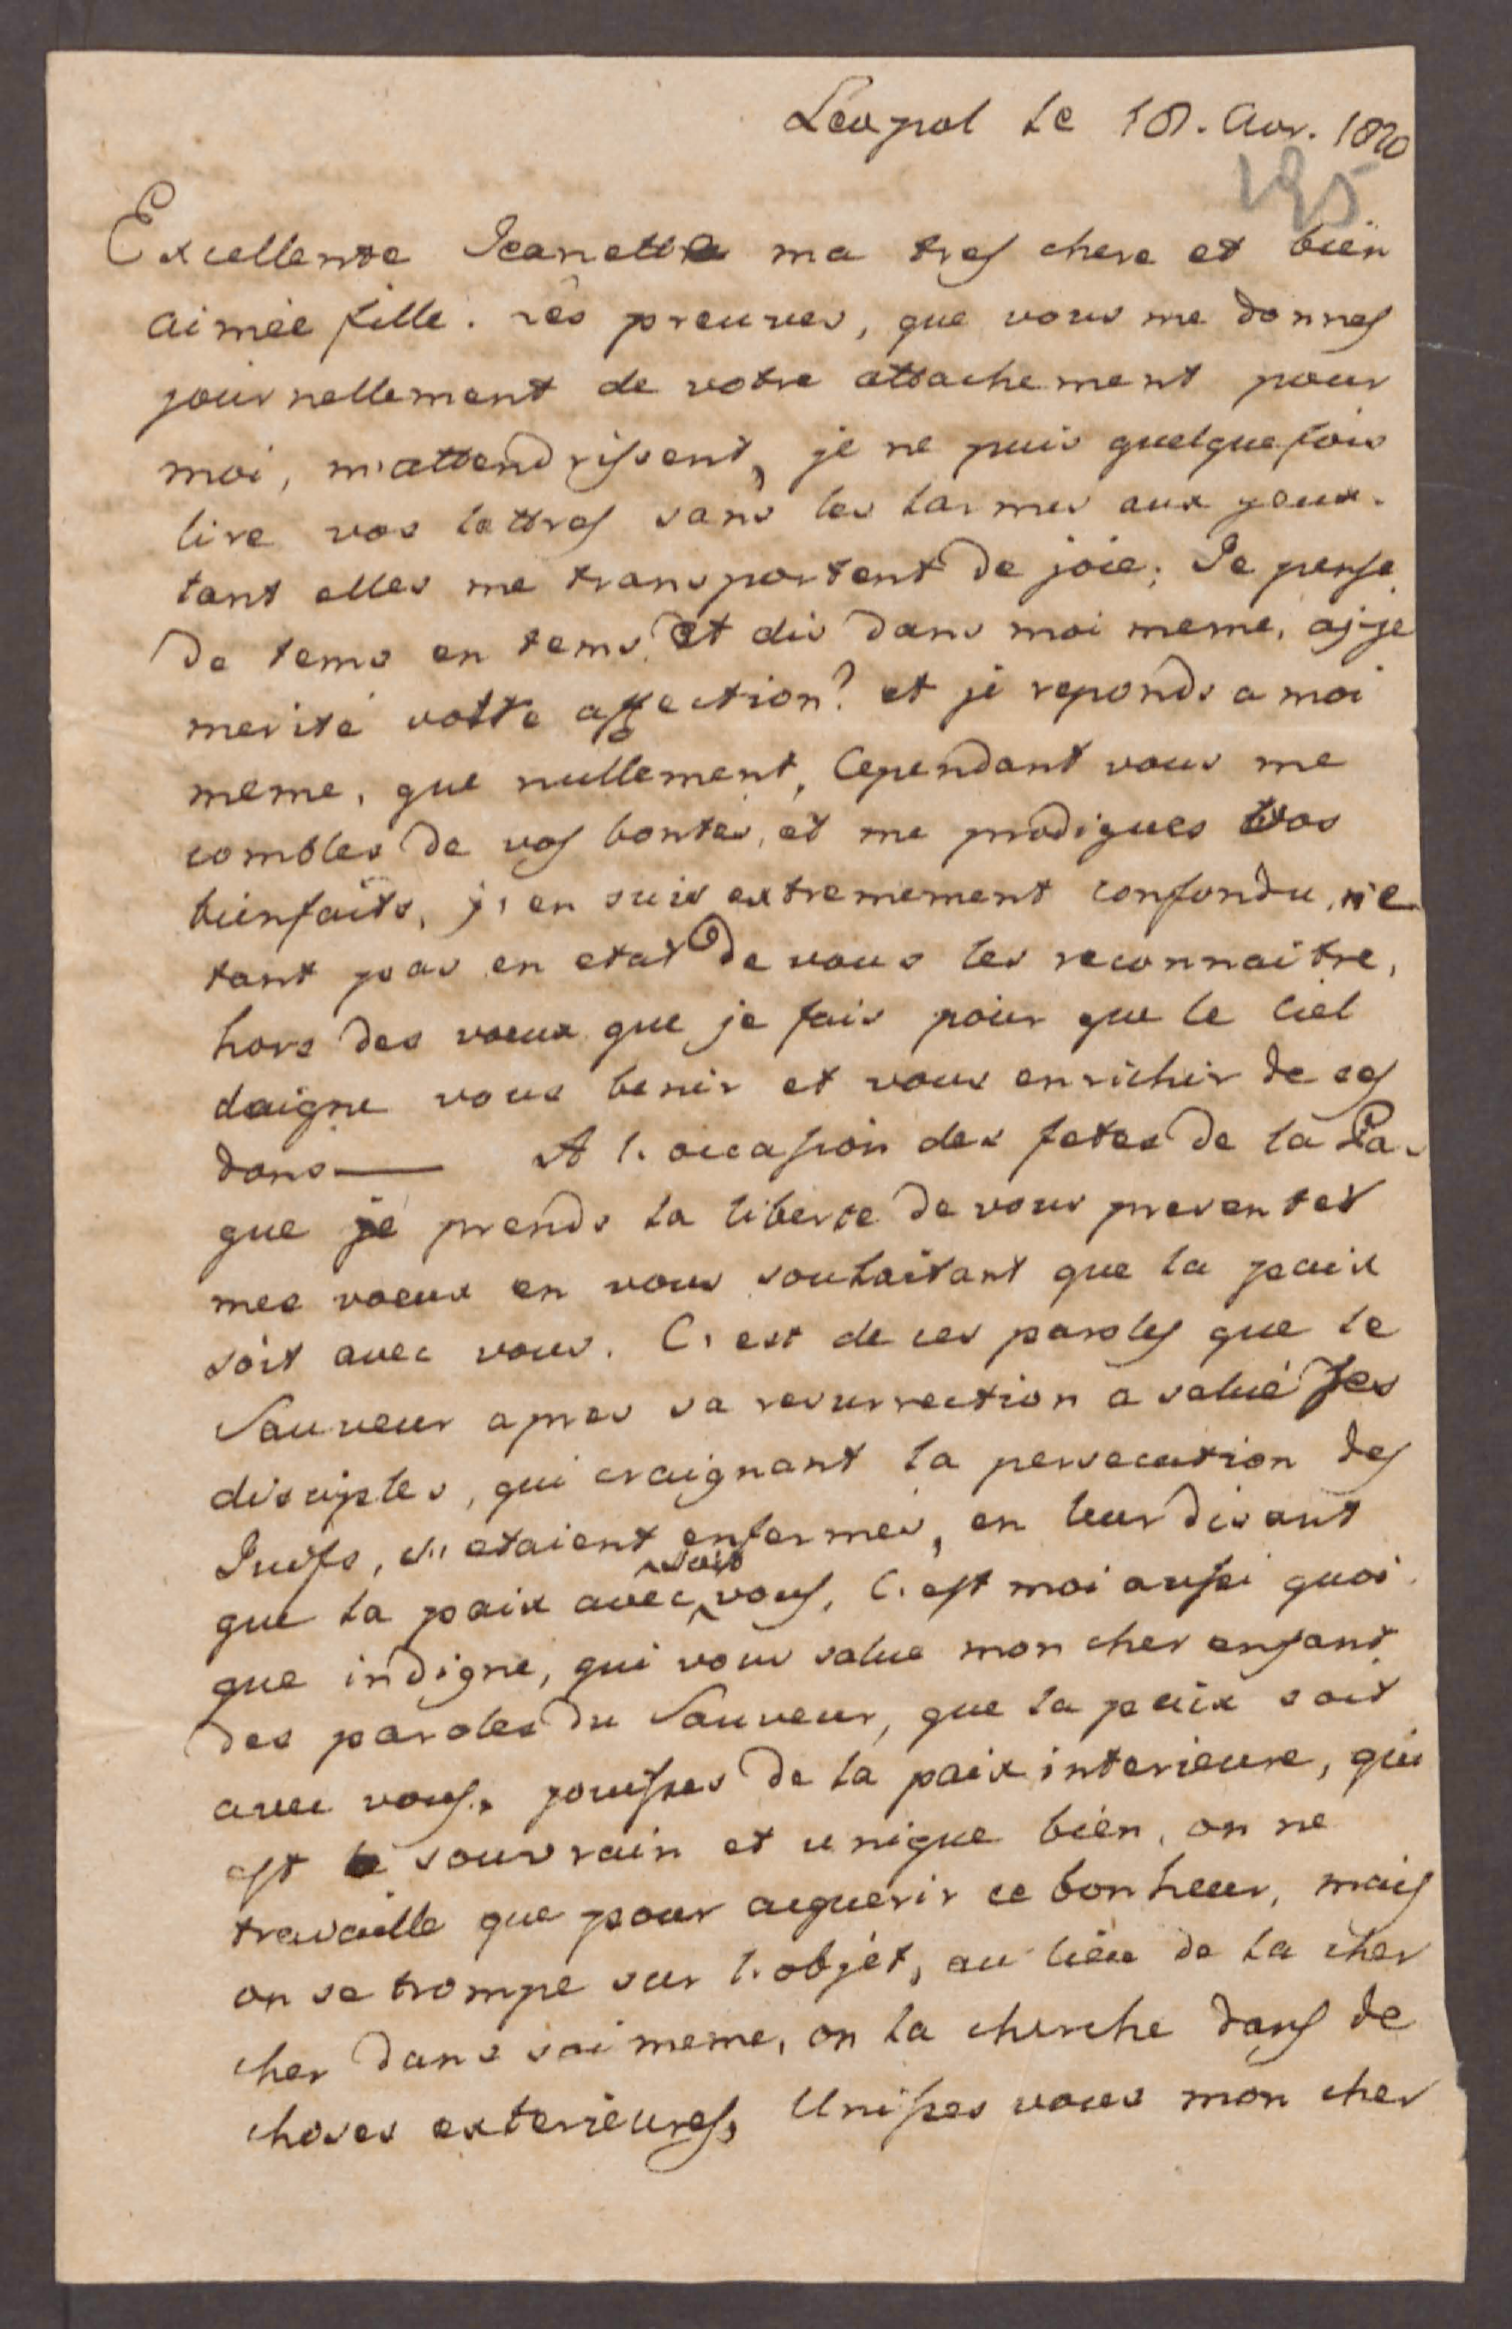 Leopol le 18. Avr. 1820
195
Excellente Jeanette ma tres chere et bien
aimée fille. les preuves, que vous me donnes
journellement de votre attachement pour
moi, m'attendrissent, je ne puis quelque fois
lire vos lettres sans les larmes aux yeux.
tant elles me transportent de joie; Je pense
de tems en tems et dis dans moi meme, aj-je
merité votre affection? et je reponds a moi
meme, que nullement, Cependant vous me
combles de vos bontés, et me prodigues vos
bienfaits, j'en suis extremement confondu, n'e
tant pas en etat de vous les reconnaitre,
hors des voeux que je fais pour que le Ciel
daigne vous benir et vous enrichir de ses
dons — A l'occasion des fetes de la Pa-
que je prends la liberte de vous presenter
mes voeux en vous souhaitant que la paix
soit avec vous. C'est de ces paroles que le
Sauveur apres sa resurrection a salué ses
disciples, qui craignant la persecution des
Juifs, s'etaient enfermés, en leur disant
que la paix avec soit vous, C'est moi aussi quoi
que indigne, qui vous salue mon cher enfant
des paroles du Sauveur, que la paix soit
avec vous, jouisses de la paix interieure, qui
est le souvrain et unique bien, on ne
travaille que pour aquerir ce bonheur, mais
on se trompe sur l'objet, au lieu de la cher
cher dans soi meme, on la cherche dans de
choses exterieures, Unisses vous mon cher